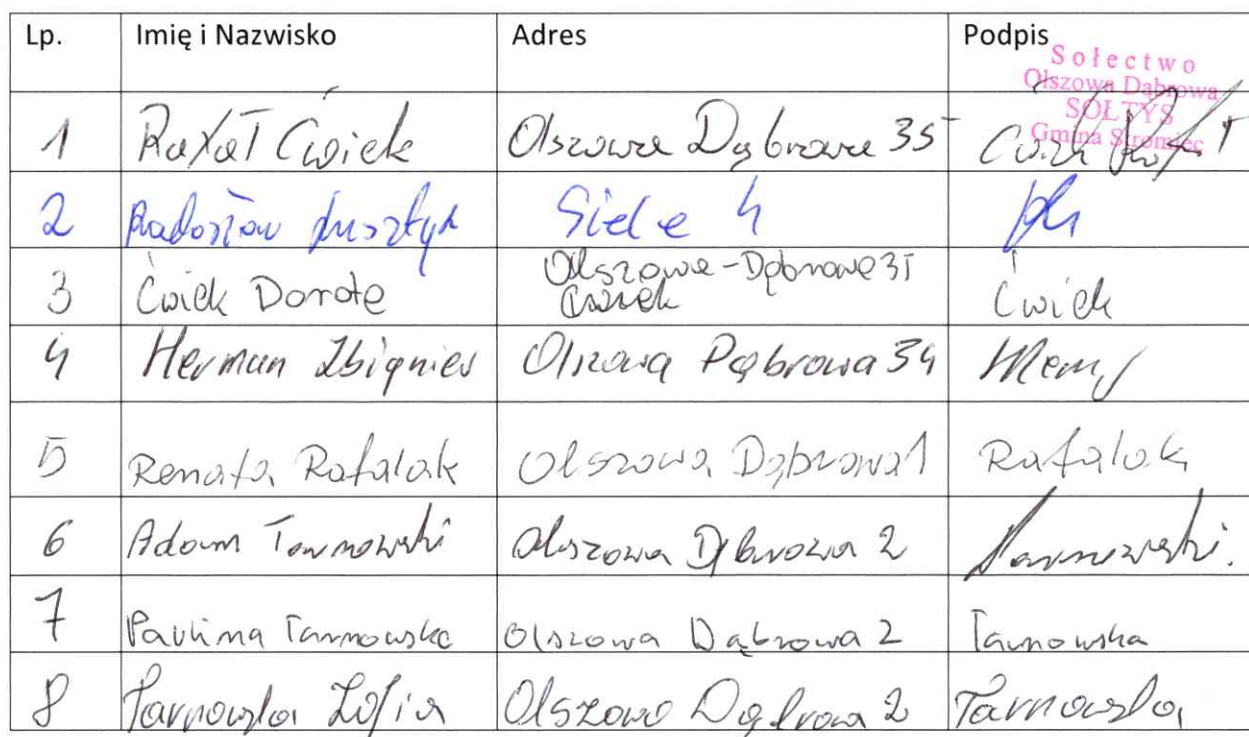 Lp. Imię i Nazwisko Adres Podpis
Sołectwo
Olszowa Dąbrowa
SOŁTYS
Gmina Stromiec
1 Rafał Ćwiek Olszowa Dąbrowa 35 Ćwiek Rafał
2 Radosław Siele 4
3 Ćwiek Dorota Olszowa-Dąbrowa 35 Ćwiek
Ćwiek
4 Herman Zbigniew Olszowa Dąbrowa 34
5 Renata Rafalak Olszowa Dąbrowa 1 Rafalak
6 Adam Tarnowski Olszowa Dąbrowa 2 Tarnowski.
7 Paulina Tarnowska Olszowa Dąbrowa 2 Tarnowska
8 Tarnowska Zofia Olszowa Dąbrowa 2 Tarnowska